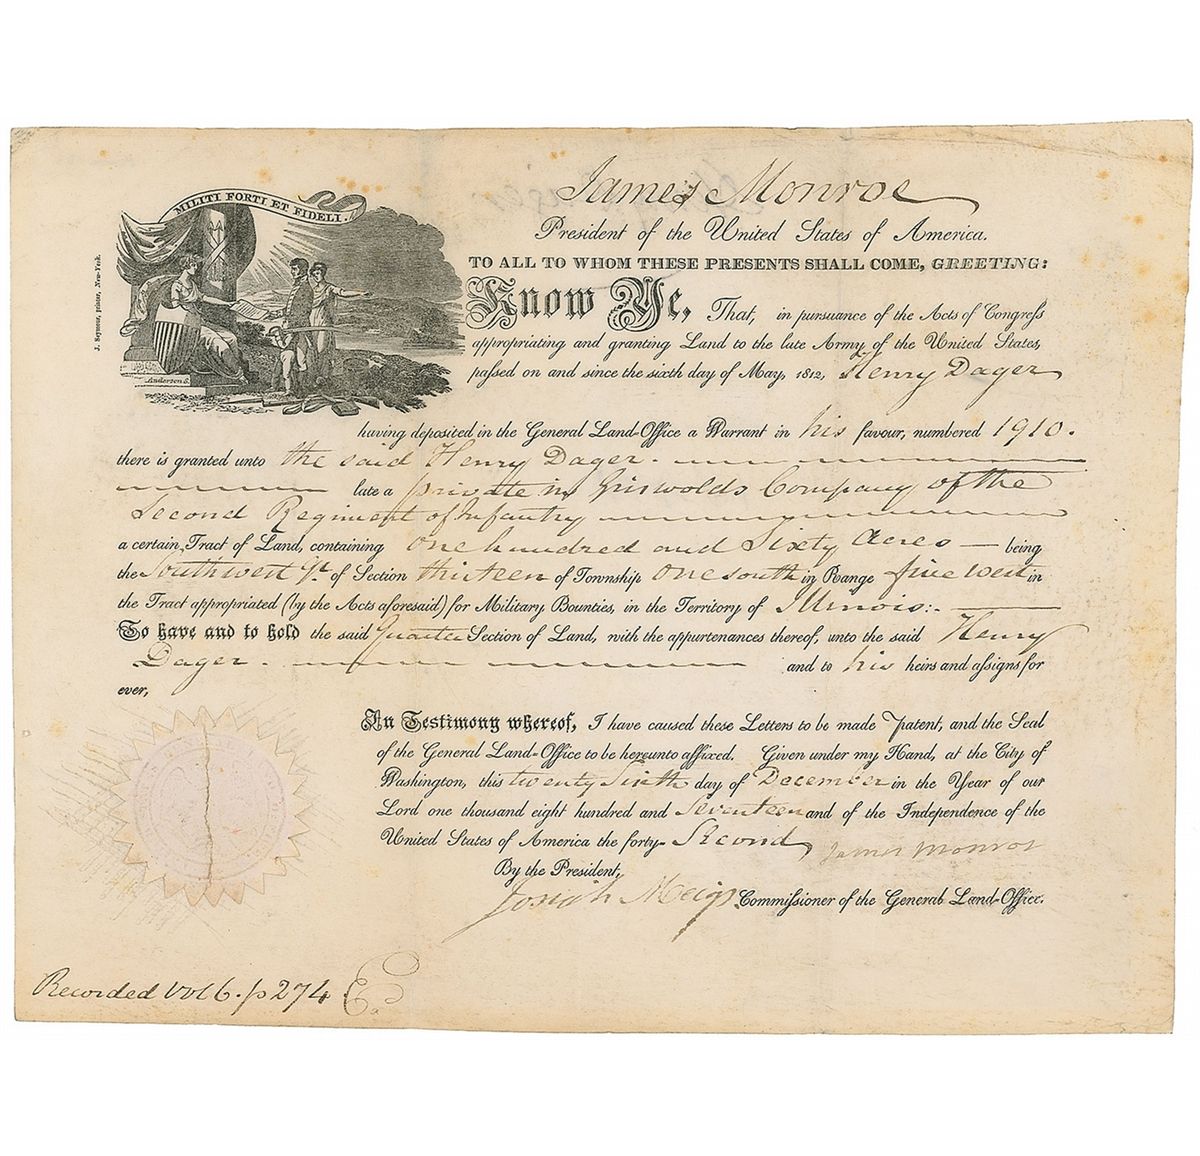 MILITI FORTI ET FIDELI.
J. Seymour, printer, New-York.
Anderson S.
James Monroe
President of the United States of America.
TO ALL TO WHOM THESE PRESENTS SHALL COME, GREETING:
Know Ye, That, in pursuance of the Acts of Congress
appropriating and granting Land to the late Army of the United States,
passed on and since the sixth day of May, 1812, Henry Dager
having deposited in the General Land-Office a Warrant in his favour, numbered 1910.
there is granted unto the said Henry Dager.
late a private in Griswolds Company of the
Second Regiment of Infantry
a certain Tract of Land, containing One hundred and Sixty Acres — being
the Southwest qr. of Section thirteen of Township One south in Range five West in
the Tract appropriated (by the Acts aforesaid) for Military Bounties, in the Territory of Illinois:.
To have and to hold the said Quarter Section of Land, with the appurtenances thereof, unto the said Henry
Dager. and to his heirs and assigns for
ever,
In Testimony whereof, I have caused these Letters to be made Patent, and the Seal
of the General Land-Office to be hereunto affixed. Given under my Hand, at the City of
Washington, this twenty Sixth day of December in the Year of our
Lord one thousand eight hundred and Seventeen and of the Independence of the
United States of America the forty-Second
James Monroe
By the President,
Josiah Meigs Commissioner of the General Land-Office.
Recorded Vol 6. p 274 E.